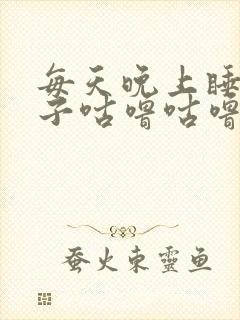 每天晚上睡
子咕噜咕噜
蚕火东靈鱼